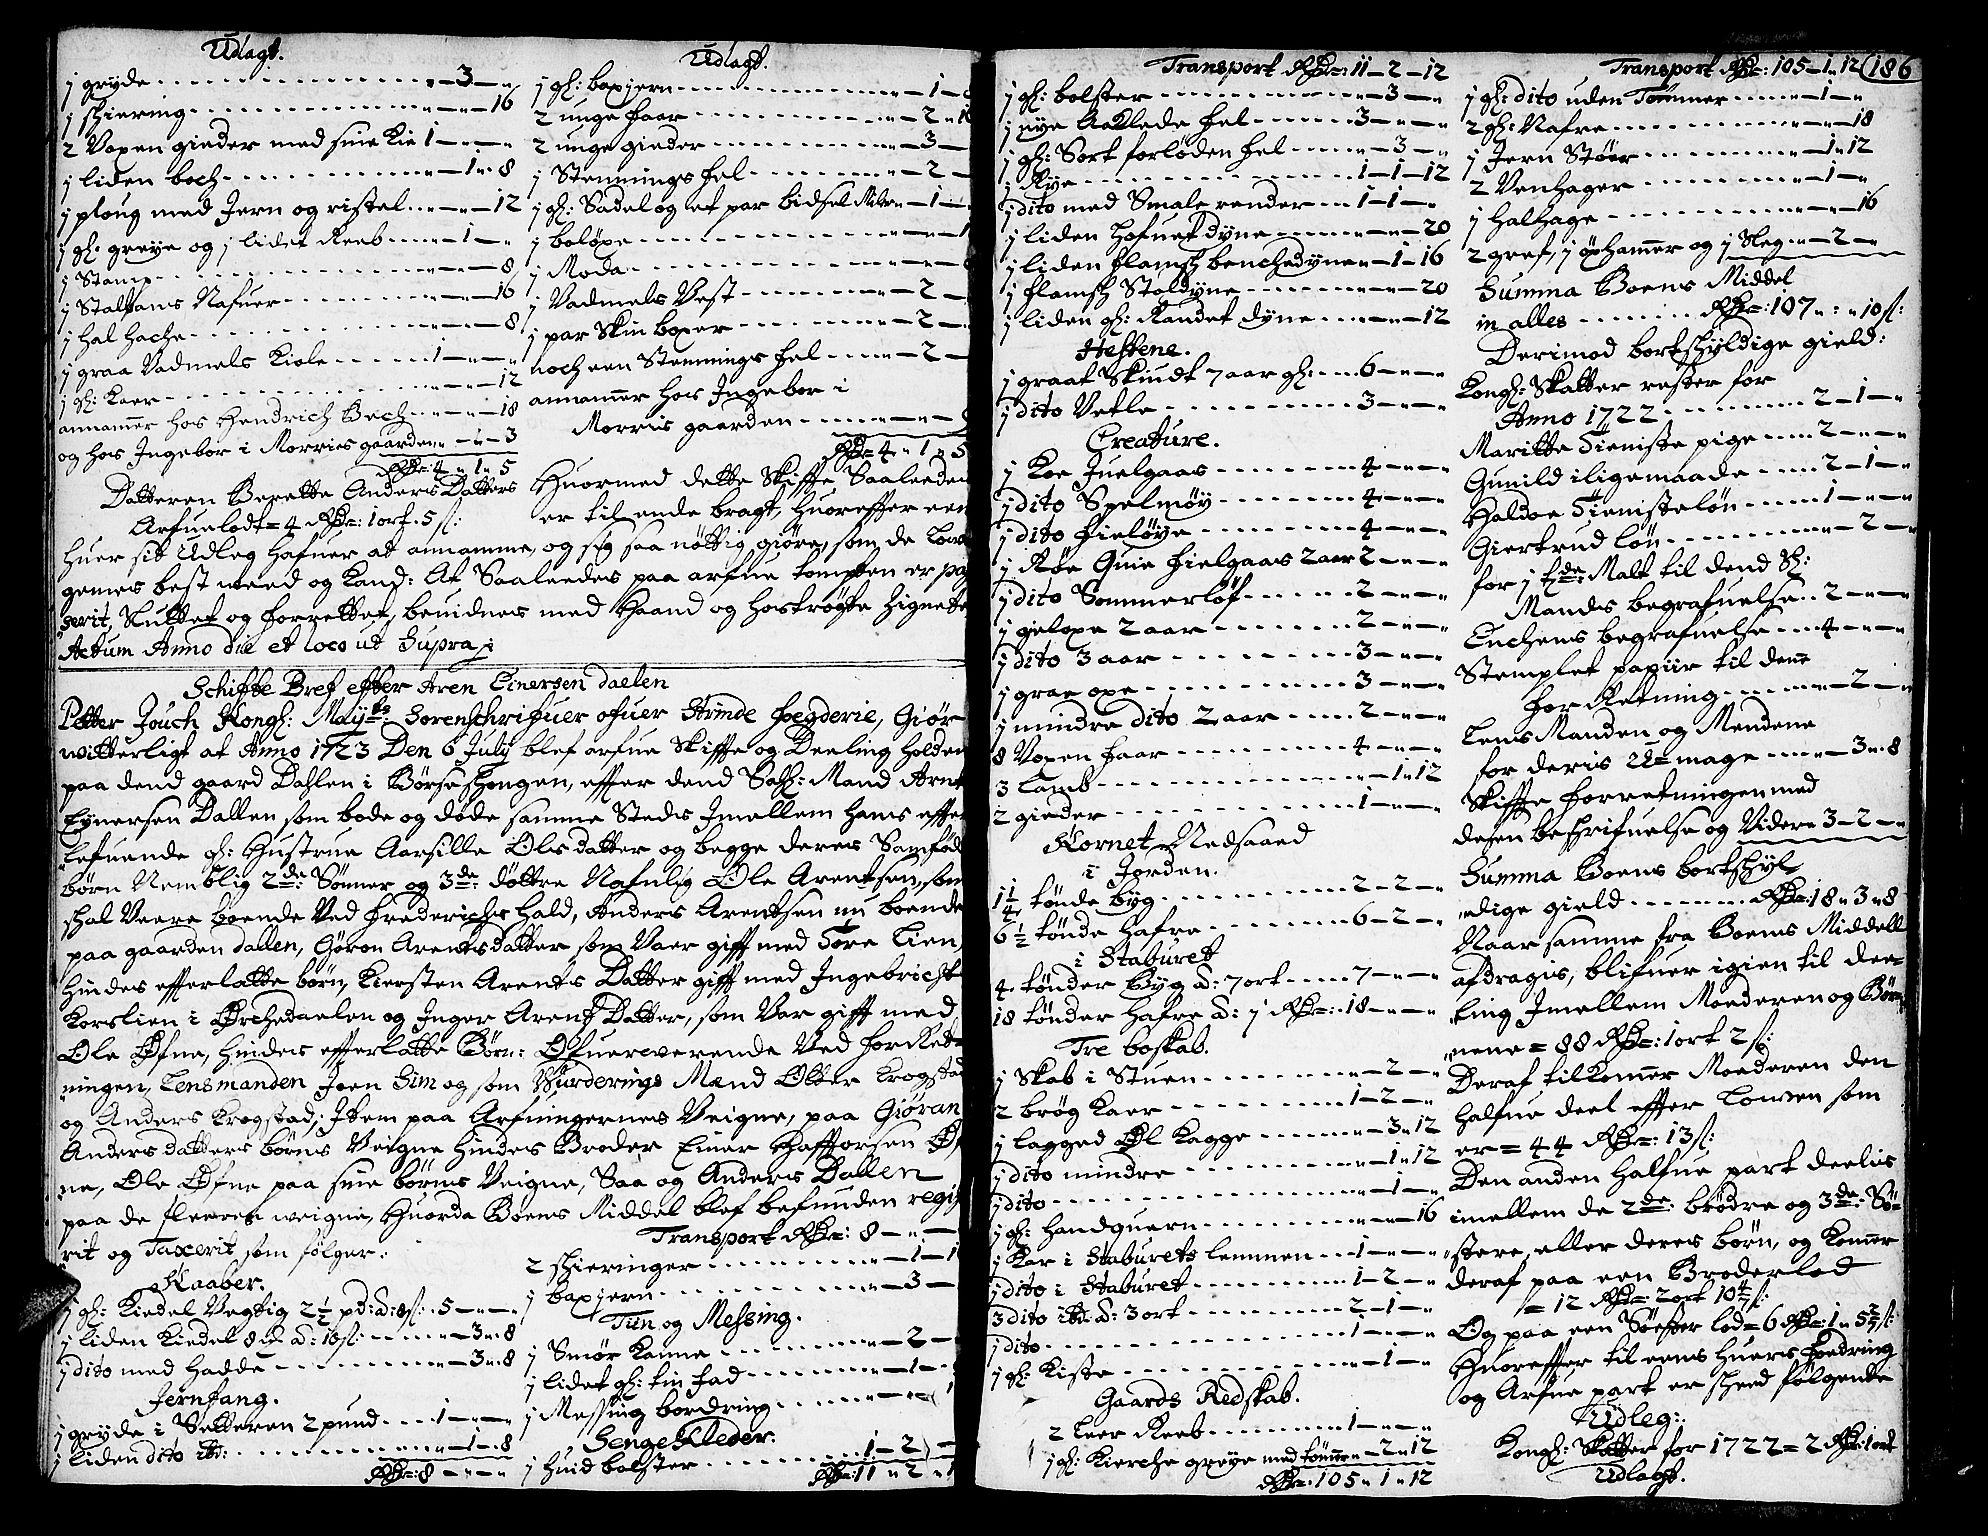 Udlagt.
j gryde - - - „ - 3 - „
j schiering - - - „ - „ - 16
2 Voxen gieder med sine Kie 1 - „ - „
j liden boch - - - „ - 1 „ 8
j ploug med Jern og ristel - - „ - „ - 12
j gl: greye og j lidet Reeb - - - „ - 1 - „
j Stamp - - - „ - „ - 8
j Staltans Nafuer - - - „ - „ - 16
j hal hache - - - „ - „ - 8
j graa Vadmels Kiole - - - 1 - „ - „
j gl: Kaer - - - „ - „ - 12
annammer hos Hendrich Bech - - „ - „ - 18
og hos Ingebor i Morries gaarden „ - „ - 3
Rdr 4 „ 1 „ 5
Datteren Berette Anders Datters
Arfuelodt = 4 Rdr: 1 ort. 5 sl:
Udlagt.
j gl: boxjern - - - „ - 1 -
2 unge faar - - - „ - 2 „
2 unge gieder - - - „ - 3 -
j Stennings fel - - - „ - 2 -
j gl: Sadel og et par bidsel „ - 1 -
j boløxe - - - „ - „ -
j Moda - - - „ - „ -
j Vadmels Vest - - - „ - 2 -
j par Skin boxer - - - „ - 2 -
noch een Stennings fel - - - „ - 2 -
annammer hos Ingebor i
Morriis gaarden - - - „ - „ -
Rdr 4 „ 1 „ 5
Huormed dette Skiffte Saaleedes
er til ende bragt, huoreffter een
huer sit Udleg hafuer at annamme, og sig saa nöttig giöre, som de
gemes best weed og Kand: At Saaleedes paa arfue tompten er
serit, Sluttet og forrettet, beuidnes med Haand og hoströgte Signette
Actum Anno die et loco ut Supra
Schiffte Bref effter Aren Einersen daelen
Petter Jouch Kongl: Mayts Sorenschrifuer ofuer Strinde foegderie, Giör
witterligt at Anno 1723 Den 6 July blef arfue Skiffte og Deeling holden
paa dend gaard Dahlen i Börseschougen, effter dend Sal: Mand Arnt
Eynersen Dallen som bode og döde samme Steds Imellem hans effter
lefuende gl: Hustrue Aarsille Olsdatter og begge deres Samfödde
börn Nemblig 2de: Sönner og 3de: döttre Nafnlig Ole Arentsen, som
schal Veere boende Ved Frederichs hald, Anders Arentsen nu boende
paa gaarden dallen, Gjöron Arentsdatter som Vaer gifft med Töre Lien,
hindes effterlatte börn, Kiersten Arents Datter gifft med Ingebricht
Korslien i Ørchedaelen og Inger Arent Datter, som Var gifft med,
Ole Øfne, hindes effterlatte Börn: Ofuerwerende Ved forRet„
„ningen, Lensmanden Joen Sim og som Vurderings Mænd Oluer Krogstad
og Anders Krogstad; Item paa Arfuingernes Veigne, paa Giöran
Anders datters börns Veigne hindes Broder Einer Hafftorsen Øf
ne, Ole Øfne paa sine börns Veigne, Saa og Anders Dallen
paa de fleeres weigne, Huorda Boens Middel blef befunden regist
rit og Taxerit som fölger:
Kaaber.
j gl: Kiedel Vegtig 2½ pd: - 5 - „ - „
j liden Kiedel 8 à: 16 sl: - - „ - 3 „ 8
j dito med hadde - - - „ - 3 „ 8
Jernfang.
j gryde i Setteren 2 pund - - 1 - „ - „
j liden dito - - - „ - 1 - 8
Rdr 8 - „ - „
Transport Rdr: 8 - „ - „
2 schieringer - - - „ - 1 -
j boxjern - - - „ - 3 -
Tiin og Messing.
j Smör Kanne - - - „ - 2 -
j lidet gl: tin fad - - - „ - 1 -
j Messing bordring - - - „ - „
Senge Kleder.
j huid bolster - - - „ 1 - 2
Rdr: 11 „ 2 „
Transport Rdr: 11 - 2 - 12
j gl: bolster - - - „ - 3 - „
j nye Aaklede fel - - - 3 - „ - „
j gl: Sort forloden fel - - - „ - 3 - „
j Rye - - - 1 - 1 - 12
j dito med Smale render - - - 1 - 1 - „
j liden hofuet dyne - - - „ - „ - 20
j liden flamsch benchedyne „ - 1 - 16
j flamsch Stoldyne - - - „ - „ - 20
j liden gl: Randet dyne - - - „ - „ - 12
Hestene.
j graat Skiudt 7 aar gl: - - - 6 - „ - „
j dito Vetle - - - 3 - „ - „
Creature.
j Koe Juelgaas - - - 4 - „ - „
j dito Spelmöy - - - 4 - „ - „
j dito fieløye - - - 4 - „ - „
j Röe Quie fielgaas 2 aar 2 - „ - „
j dito Sommerlöf - - - 2 - „ - „
j geloxe 2 aar - - - 2 - „ - „
j dito 3 aar - - - 3 - „ - „
j grae oxe - - - 3 - „ - „
j mindre dito 2 aar - - - 2 - „ - „
8 Voxen faar - - - 4 - „ - „
3 Lamb - - - „ - 1 „ 12
2 gieder - - - 1 - „ - „
Kornet Nedsaaed
i Jorden.
1¼ tönde byg - - - 2 - 2 - „
6½ tönde hafre - - - 6 - 2 - „
i Staburet
4 tönder Byg à: 7 ort - - - 7 - „ - „
18 tönder hafre à: j Rdr: - 18 - „ - „
Tre boskab.
j Skab i Stuen - - - „ - 2 - „
2 brög Kaer - - - 1 - 2 - „
j lagged Øl Kagge - - - „ - 3 „ 12
j dito mindre - - - „ - 1 „ 12
j dito - - - „ - 1 - „
j gl: handquern - - - „ - „ - 16
j Kar i Staburets lemmen - - 1 - „ - „
j dito i Staburet - - - 1 - 2 - „
3 dito ibd: à: 3 ort - - - 2 - 1 - „
j dito - - - 1 - „ - „
j gl: Kiste - - - „ - 1 - „
Gaards Redskab.
2 Leer Reeb - - - 1 - „ - „
j gl: Kierche greye med tömme „ - 2 „ 12
Rdr: 105 „ 1 „ 12
Transport Rdr: 105 - 1 „ 12 186
j gl: dito uden Tömmer - - - „ - 1 - „
2 gl: Nafre - - - „ - „ - 18
j Jern Stöer - - - „ - 1 „ 12
2 Venhager - - - „ - 1 - „
j halhage - - - „ - „ - 16
2 gref, j öxhamer og j Sleg - „ - 2 - „
Summa Boens Middel
in alles - - - Rdr: 107 „ „ 10 sl:
Derimod bortschyldige gield:
Kongl: Skatter rester for
Anno 1722 - - - 2 - 1 - „
Maritte Tieniste pige - - - 2 - „ - „
Gunild iligemaade - - - 2 - 1 - „
Haldoe Tienisteløn - - - 1 - „ - „
Giertrud løn - - - „ - 2 - „
for j tde: Malt til dend Sl:
Mands begrafuelse - - 2 - „ - „
Enchens begrafuelse - - - 4 - „ - „
Stemplet papiir til denne
forRetning - - - „ - 2 - „
Lens Manden og Mendene
for deris umage - - - „ - 3 „ 8
Skiffte forretningen med
desen beschrifuelse og Videre 3 - 2 - „
Summa Boens bortschyl
„dige gield - - - Rdr: 18 „ 3 „ 8
Naar samme fra Boens Middell
afdragis, blifuer igien til dee„
„ling Imellem Moederen og Bör„
„nene = 88 Rdr: 1 ort 2 sl:
Deraf tilkommer Moederen den
halfue deel effter Lowen som
er = 44 Rdr: 13 sl:
Den anden halfue part deelis
imellem de 2de: brödre og 3de: Sö„
„stere, eller deres börn, og Kommer
deraf paa een Broderlod
= 12 Rdr: 2 ort 10 4/7 sl:
Og paa een Söester lod = 6 Rdr: 1 „ 5 2/7 sl:
Huoreffter til eens huers foedring
og Arfue part er scheed fölgende
Udleg:
Kongl: Skatter for 1722 = 2 Rdr: 1 ort
Udlagt.